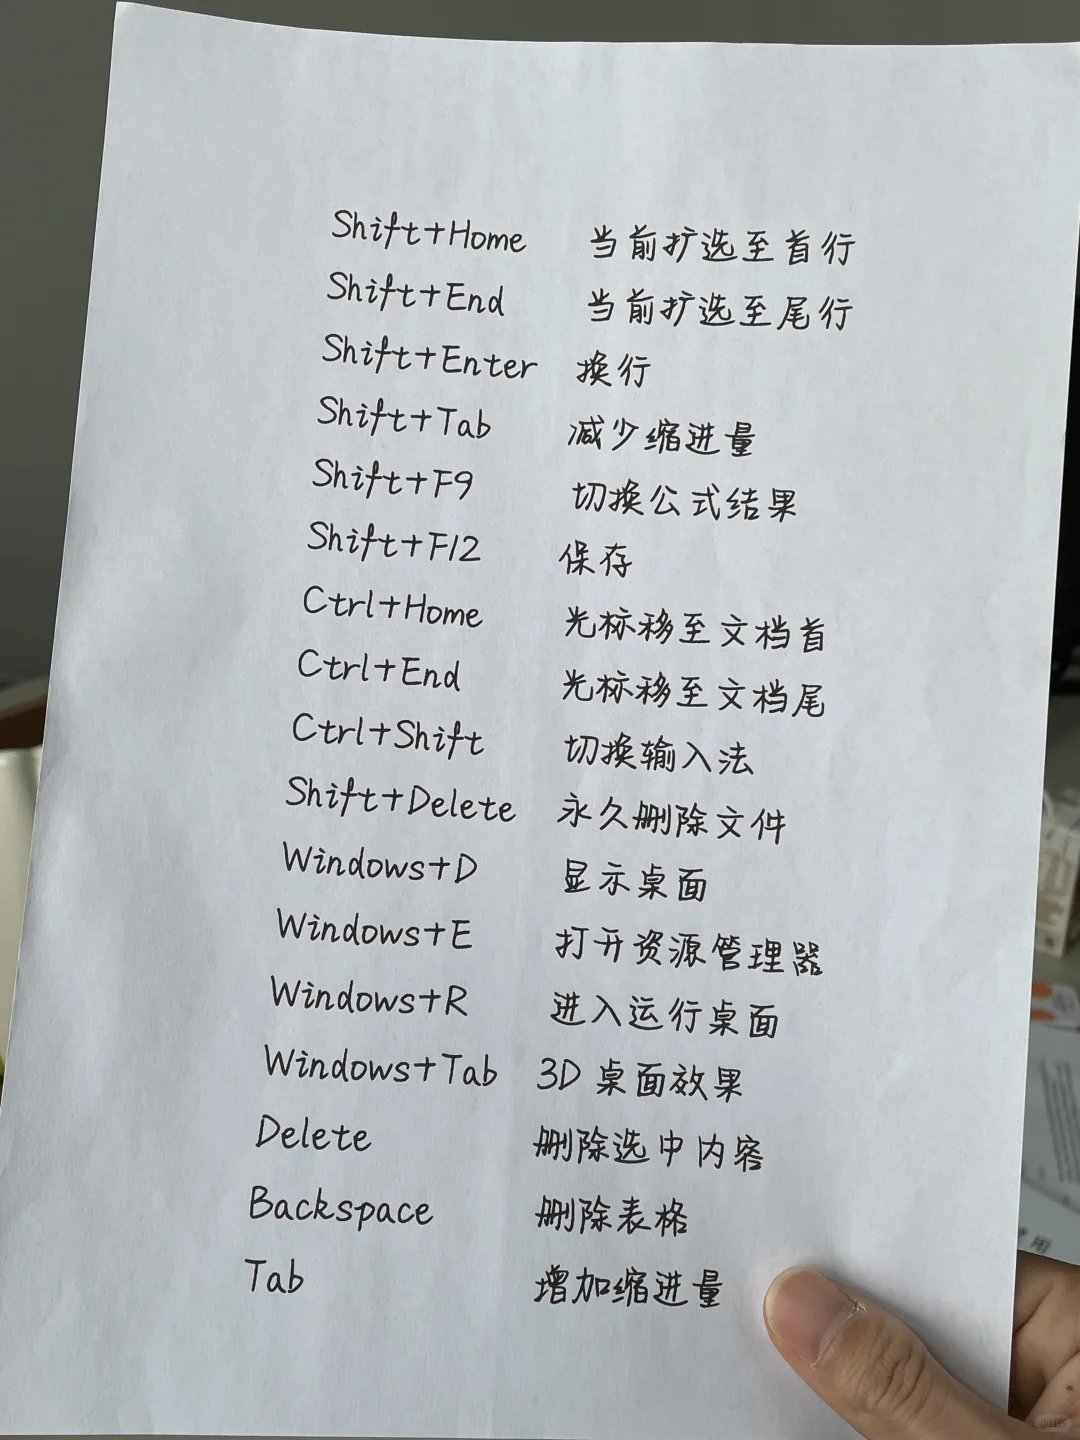 Shift+Home 当前扩选至首行
Shift+End 当前扩选至尾行
Shift+Enter 换行
Shift+Tab 减少缩进量
Shift+F9 切换公式结果
Shift+F12 保存
Ctrl+Home 光标移至文档首
Ctrl+End 光标移至文档尾
Ctrl+Shift 切换输入法
Shift+Delete 永久删除文件
Windows+D 显示桌面
Windows+E 打开资源管理器
Windows+R 进入运行桌面
Windows+Tab 3D桌面效果
Delete 删除选中内容
Backspace 删除表格
Tab 增加缩进量
用